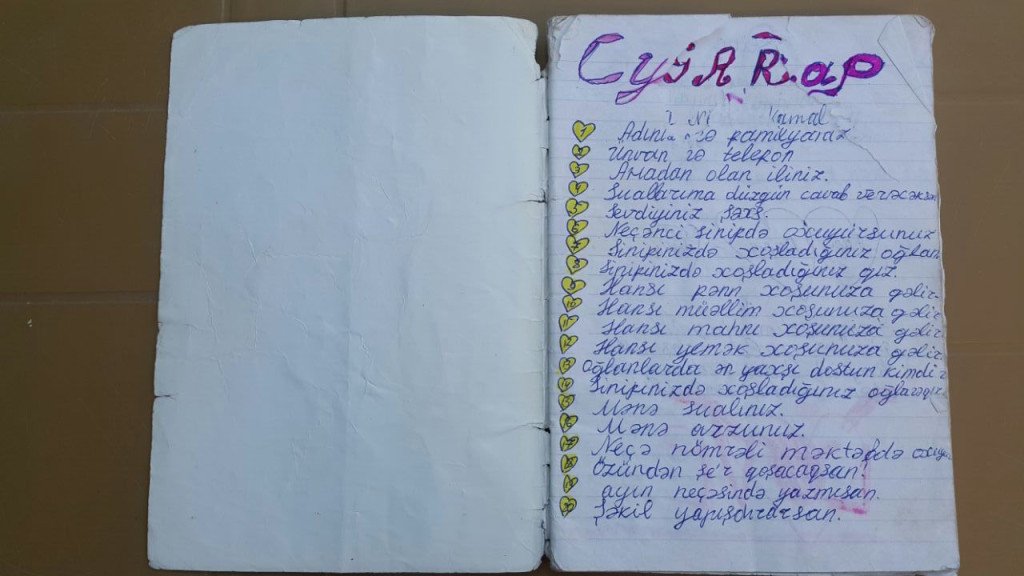 Суаллар
Kamal
1 Adınız və familyanız
2 Ünvan və telefon
3 Anadan olan iliniz.
4 Suallarıma düzgün cavab verəcəksən
5 Sevdiyiniz şəxs.
6 Neçənci sinifdə oxuyursunuz
7 Sinifinizdə xoşladığınız oğlan
8 Sinifinizdə xoşladığınız qız.
9 Hansı fənn xoşunuza gəlir
10 Hansı müəllim xoşunuza gəlir
11 Hansı mahnı xoşunuza gəlir
12 Hansı yemək xoşunuza gəlir
13 Oğlanlarda ən yaxşı dostun kimdir
14 Sinifinizdə xoşladığınız
15 Mənə sualınız.
16 Mənə arzunuz.
17 Neçə nömrəli məktəbdə
18 Özündən şe'r qoşacaqsan!
19 ayın neçəsində yazmısan.
20 Şəkil yapışdırarsan.